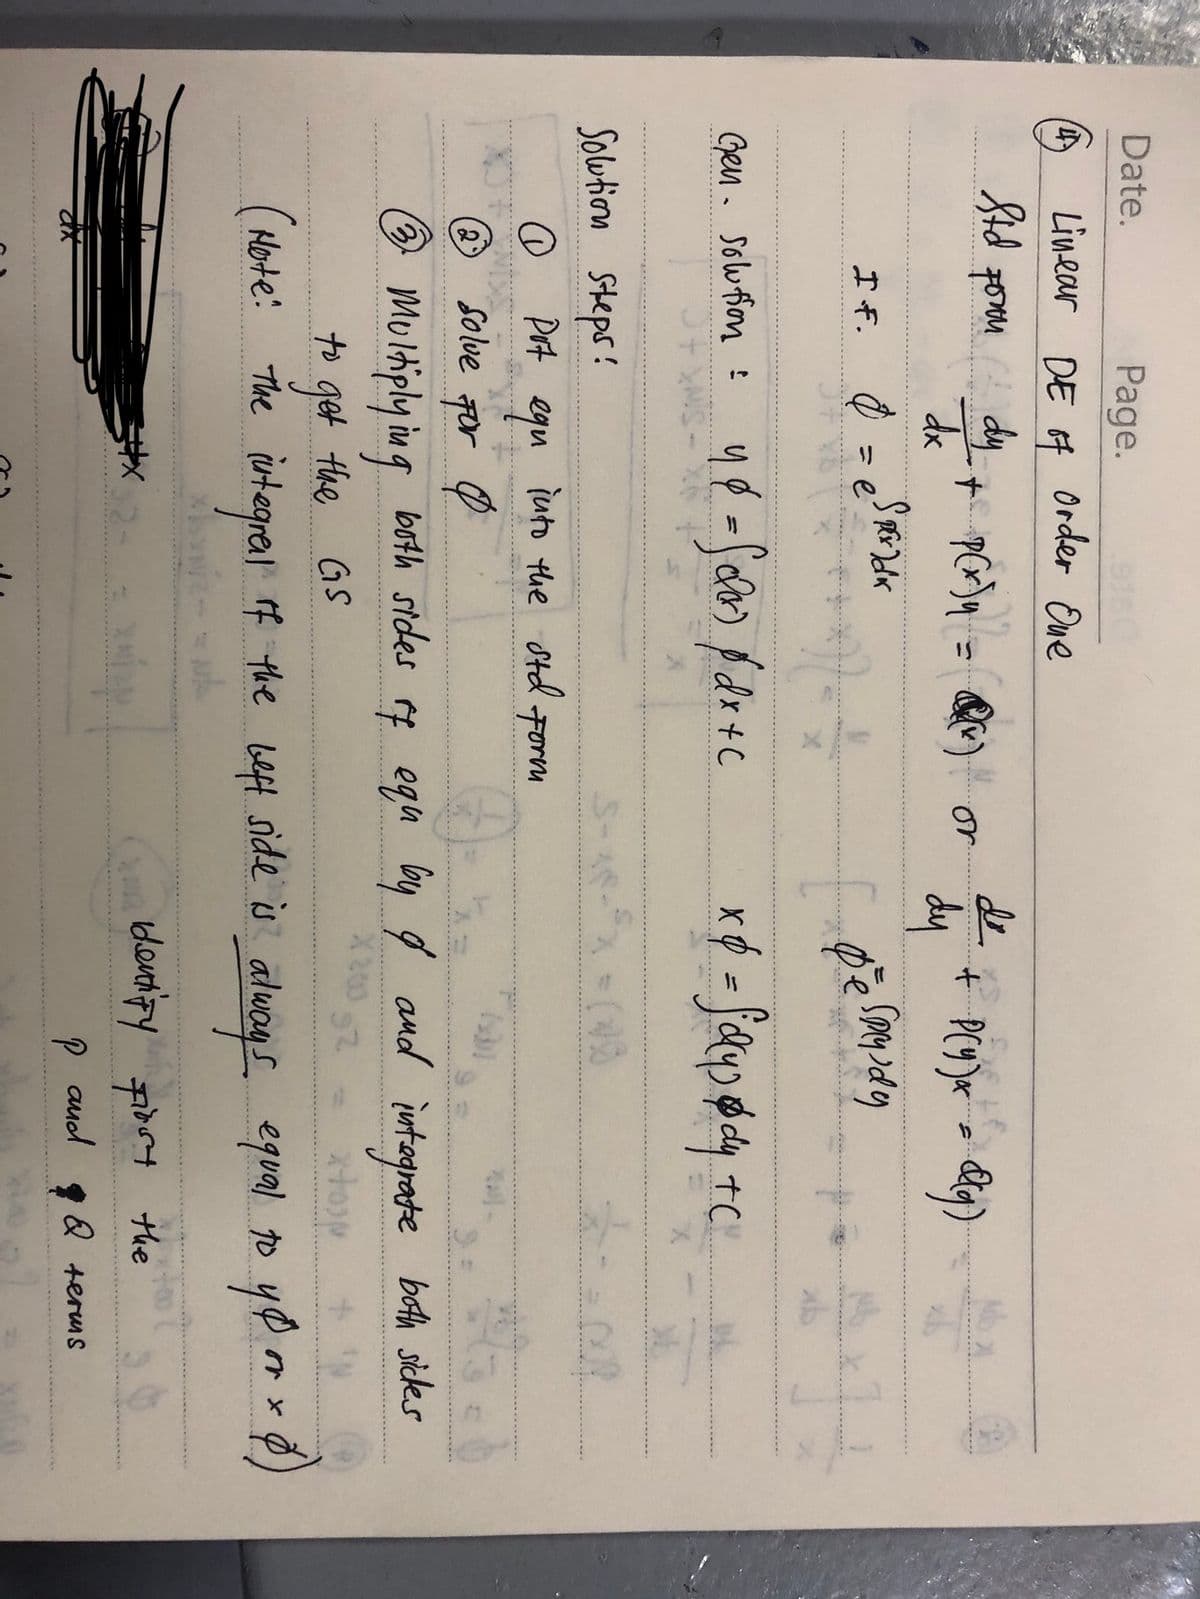 Date. Page.
④ Linear DE of Order One
Std form dy/dx + p(x)y = Q(x) or dx/dy + P(y)x = Q(y)
I.F. ϕ = e^∫p(x)dx ϕ = e^∫p(y)dy
Gen. solution : yϕ = ∫Q(x) ϕ dx + C xϕ = ∫Q(y) ϕ dy + C
Solution Steps:
① Put eqn into the std form
② solve for ϕ
③ Multiplying both sides of eqn by ϕ and integrate both sides
to get the GS
(Note: The integral of the left side is always equal to yϕ or xϕ)
Identify first the
P and Q terms
dx